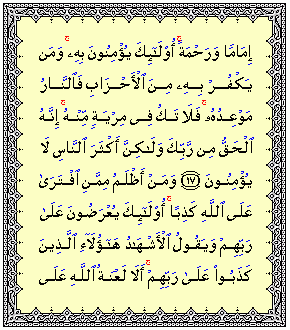 إِمَامًا وَرَحْمَةً ۚ أُو۟لَٰٓئِكَ يُؤْمِنُونَ بِهِۦ ۚ وَمَن
يَكْفُرْ بِهِۦ مِنَ ٱلْأَحْزَابِ فَٱلنَّارُ
مَوْعِدُهُۥ ۚ فَلَا تَكُ فِى مِرْيَةٍ مِّنْهُ ۚ إِنَّهُ
ٱلْحَقُّ مِن رَّبِّكَ وَلَٰكِنَّ أَكْثَرَ ٱلنَّاسِ لَا
يُؤْمِنُونَ ﴿١٧﴾ وَمَنْ أَظْلَمُ مِمَّنِ ٱفْتَرَىٰ
عَلَى ٱللَّهِ كَذِبًا ۚ أُو۟لَٰٓئِكَ يُعْرَضُونَ عَلَىٰ
رَبِّهِمْ وَيَقُولُ ٱلْأَشْهَٰدُ هَٰٓؤُلَآءِ ٱلَّذِينَ
كَذَبُوا۟ عَلَىٰ رَبِّهِمْ ۚ أَلَا لَعْنَةُ ٱللَّهِ عَلَى